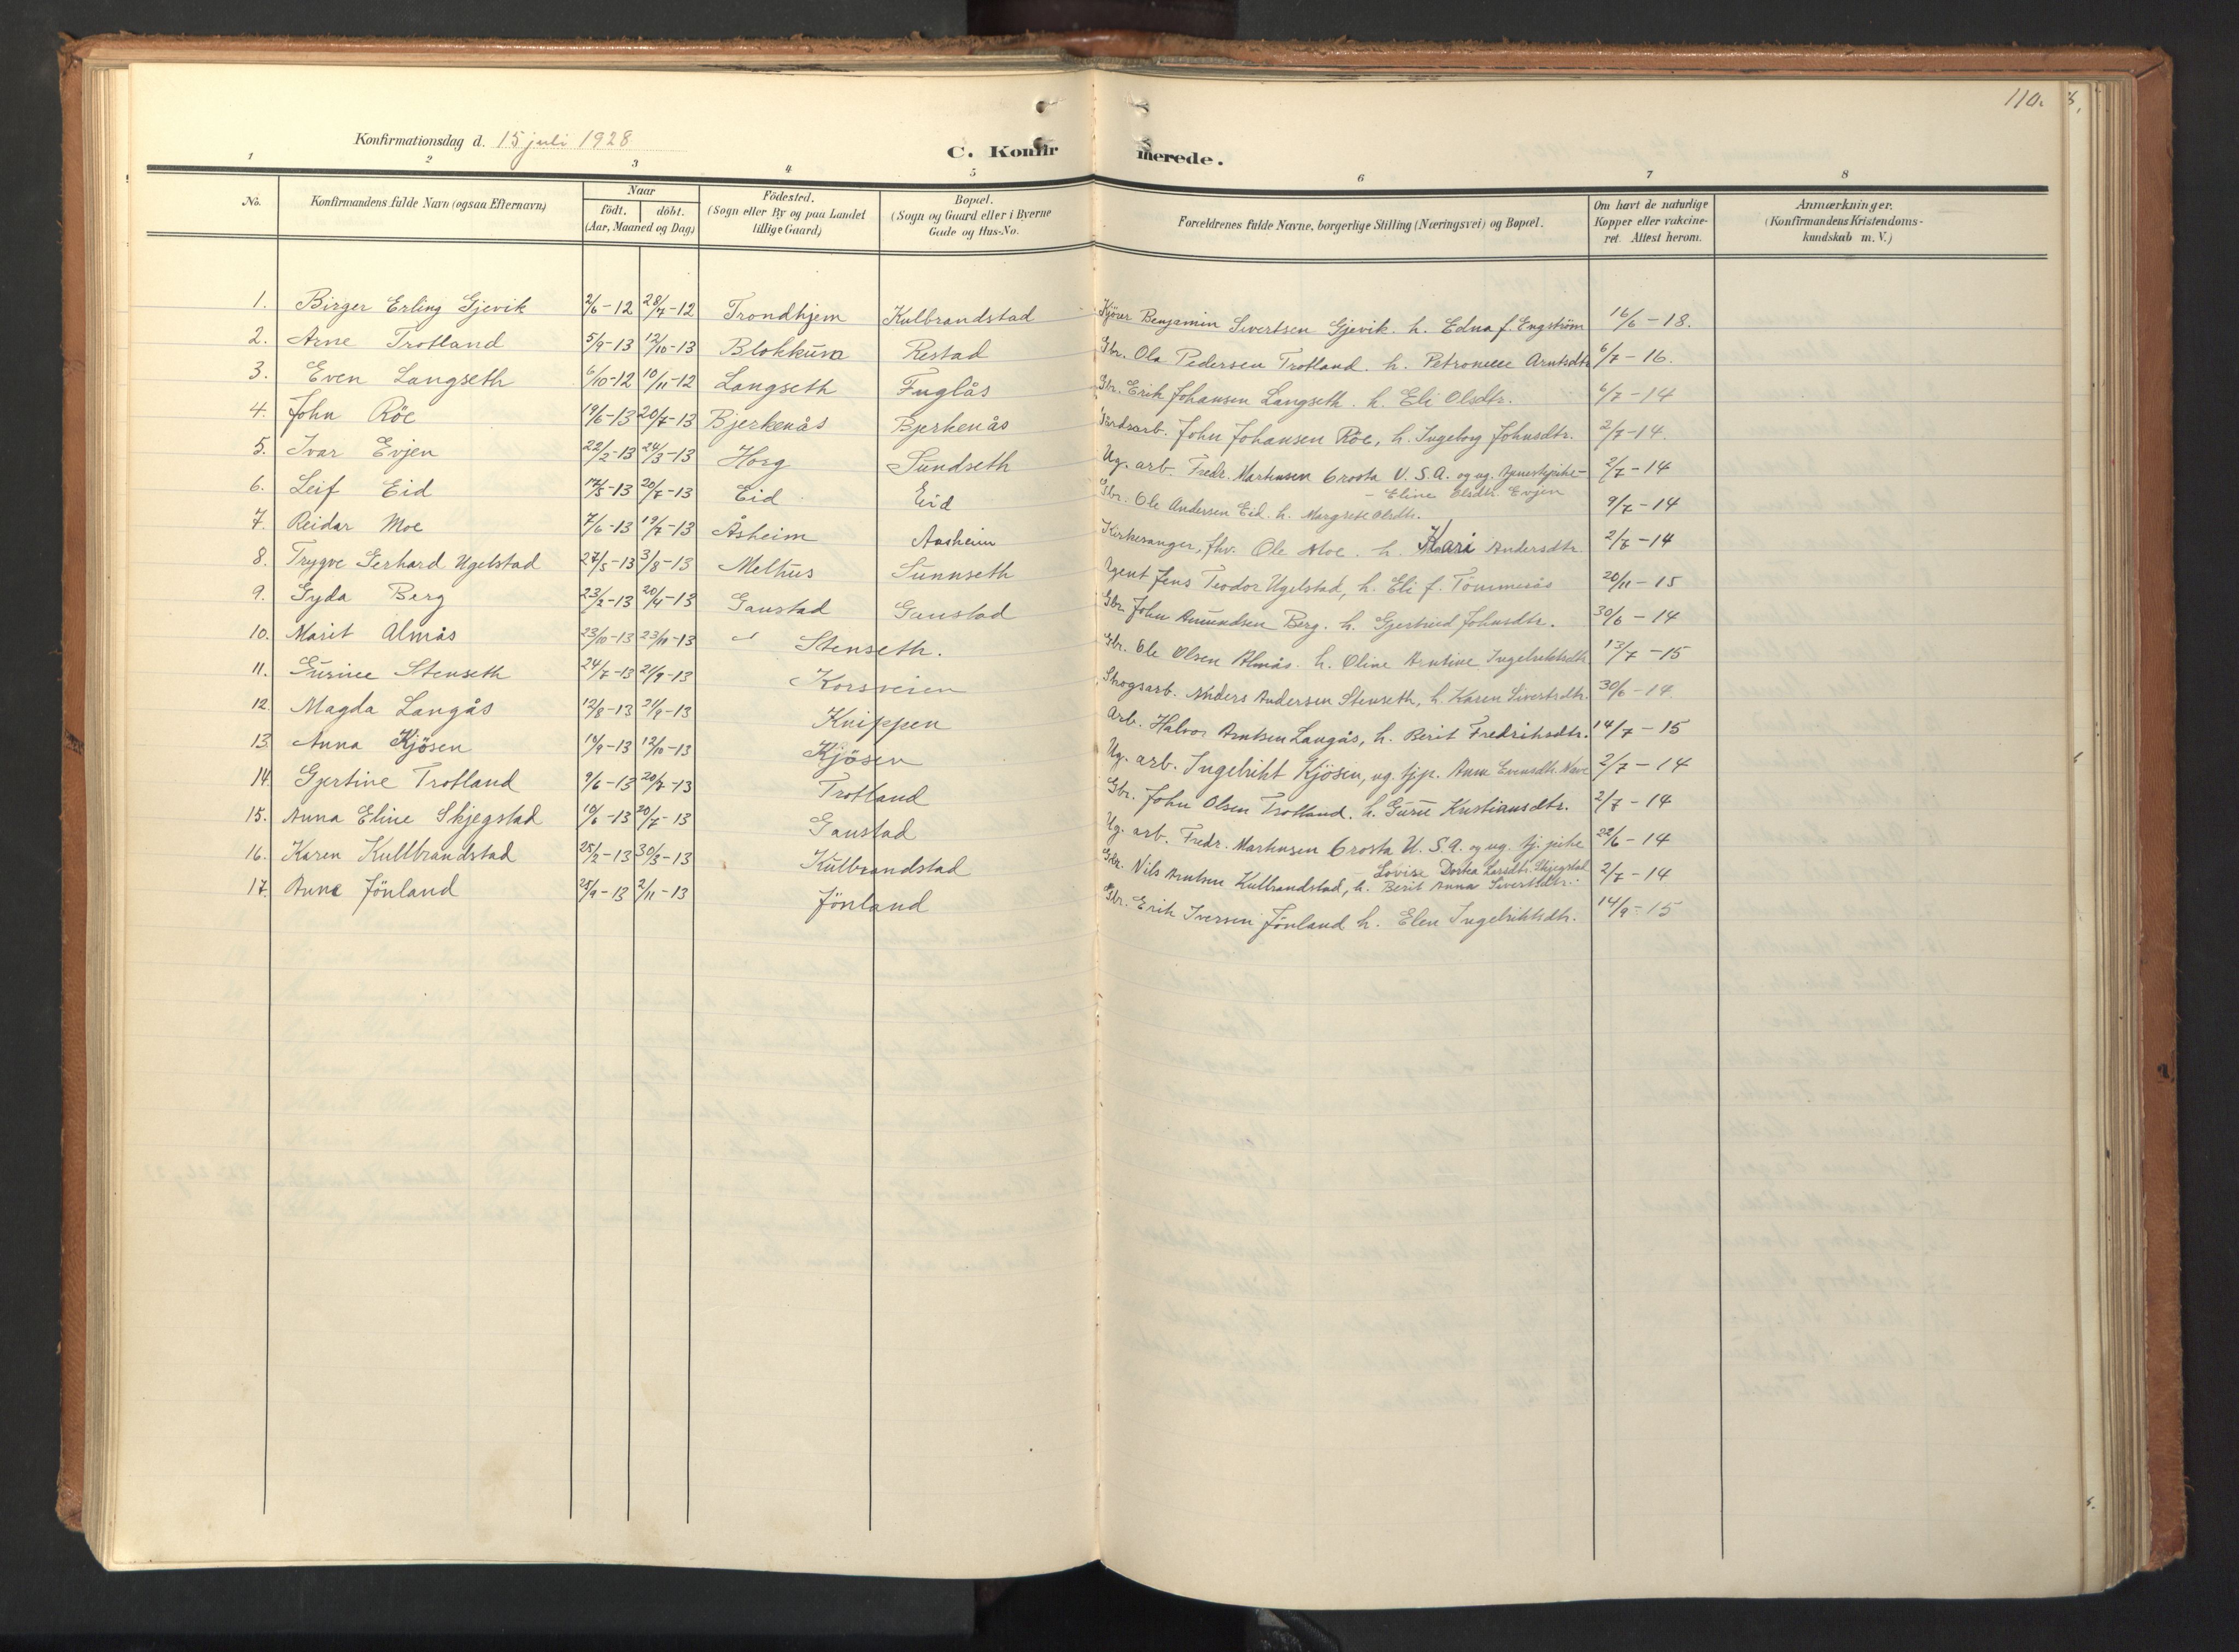 110.
Konfirmationsdag d. 15 juli 1928
C. Konfirmerede.
1 2 3 4 5 6 7 8
No.
Konfirmandens fulde Navn (ogsaa Efternavn)
Naar
födt. döbt.
(Aar, Maaned og Dag)
Födested.
(Sogn eller By og paa Landet
tillige Gaard)
Bopæl.
(Sogn og Gaard eller i Byerne
Gade og Hus-No.
Forældrenes fulde Navne, borgerlige Stilling (Næringsvei) og Bopæl.
Om havt de naturlige
Kopper eller vakcine-
ret. Attest herom.
Anmærkninger.
(Konfirmandens Kristendoms-
kundskab m. V.)
1. Birger Erling Gjevik 2/6-12 28/7-12 Trondhjem Kulbrandstad Kjörer Benjamin Sivertsen Gjevik. h. Edna f. Engström 16/6-18.
2. Arne Trotland 5/9-13 12/10-13 Blokkum Restad Gbr. Ola Pedersen Trotland. h. Petronelle Arntsdtr 6/7-16.
3. Even Langseth 6/10-12 10/11-12 Langseth Fuglås Gbr. Erik Johansen Langseth. h. Eli Olsdtr. 6/7-14
4. John Röe 19/6-13 20/7-13 Bjerkenås Bjerkenås Gårdsarb. John Johansen Röe, h. Ingeborg Johnsdtr. 2/7-14.
5. Ivar Evjen 22/2-13 24/3-13 Horg Sundseth Ug. arb. Fredr. Martinsen Crosta U.S.A. og ug. tjenestepike- 2/7-14
- Eline Olsdtr. Evjen
6. Leif Eid 17/5-13 20/7-13 Eid Eid Gbr. Ole Andersen Eid. h. Margrete Olsdtr. 9/7-14
7. Reidar Moe 7/6-13 19/7-13 Åsheim Aasheim Kirkesanger, fhv. Ole Moe. h. Kari Andersdtr. 2/7-14
8. Trygve Gerhard Ugelstad 27/5-13 3/8-13 Melhus Sunnseth Agent Jens Teodor Ugelstad, h. Eli f. Tömmerås 20/11-15
9. Gyda Berg 23/2-13 20/4-13 Gaustad Gaustad Gbr. John Amundsen Berg. h. Gjertrud Johnsdtr. 30/6-14
10. Marit Almås 23/10-13 23/11-13 " Stenseth. Gbr. Ole Olsen Almås. h. Oline Arntine Ingebriktsdtr 13/7-15
11. Gurine Stenseth 24/7-13 21/9-13 Korsveien Skogsarb. Anders Andersen Stenseth, h. Karen Sivertsdtr. 30/6-14.
12. Magda Langås 12/8-13 21/9-13 Knippen Arb. Halvor Arntsen Langås, h. Berit Fredriksdtr. 14/7-15
13. Anna Kjösen 10/9-13 12/10-13 Kjösen Ug. arb. Ingebrikt Kjösen, ug. tjp. Anne Evensdtr. 2/7-14
14. Gjertine Trotland 9/6-13 20/7-13 Trotland Gbr. John Olsen Trotland. h. Guru Kristiansdtr. 2/7-14
15. Anna Eline Skjegstad 10/6-13 20/7-13 Gaustad Ug. arb. Fredr. Martinsen Crosta U.S.A. og ug. tj. pike 22/6-14
- Lovise Dortea Larsdtr. Skjegstad
16. Karen Kullbrandstad 25/2-13 30/3-13 Kulbrandstad Gbr. Nils Arntsen Kulbrandstad, h. Berit Anna Sivertsdtr. 2/7-14
17. Anne Jönland 25/9-13 2/11-13 Jönland Gbr. Erik Iversen Jönland h. Elen Ingebriktsdtr. 14/9-15